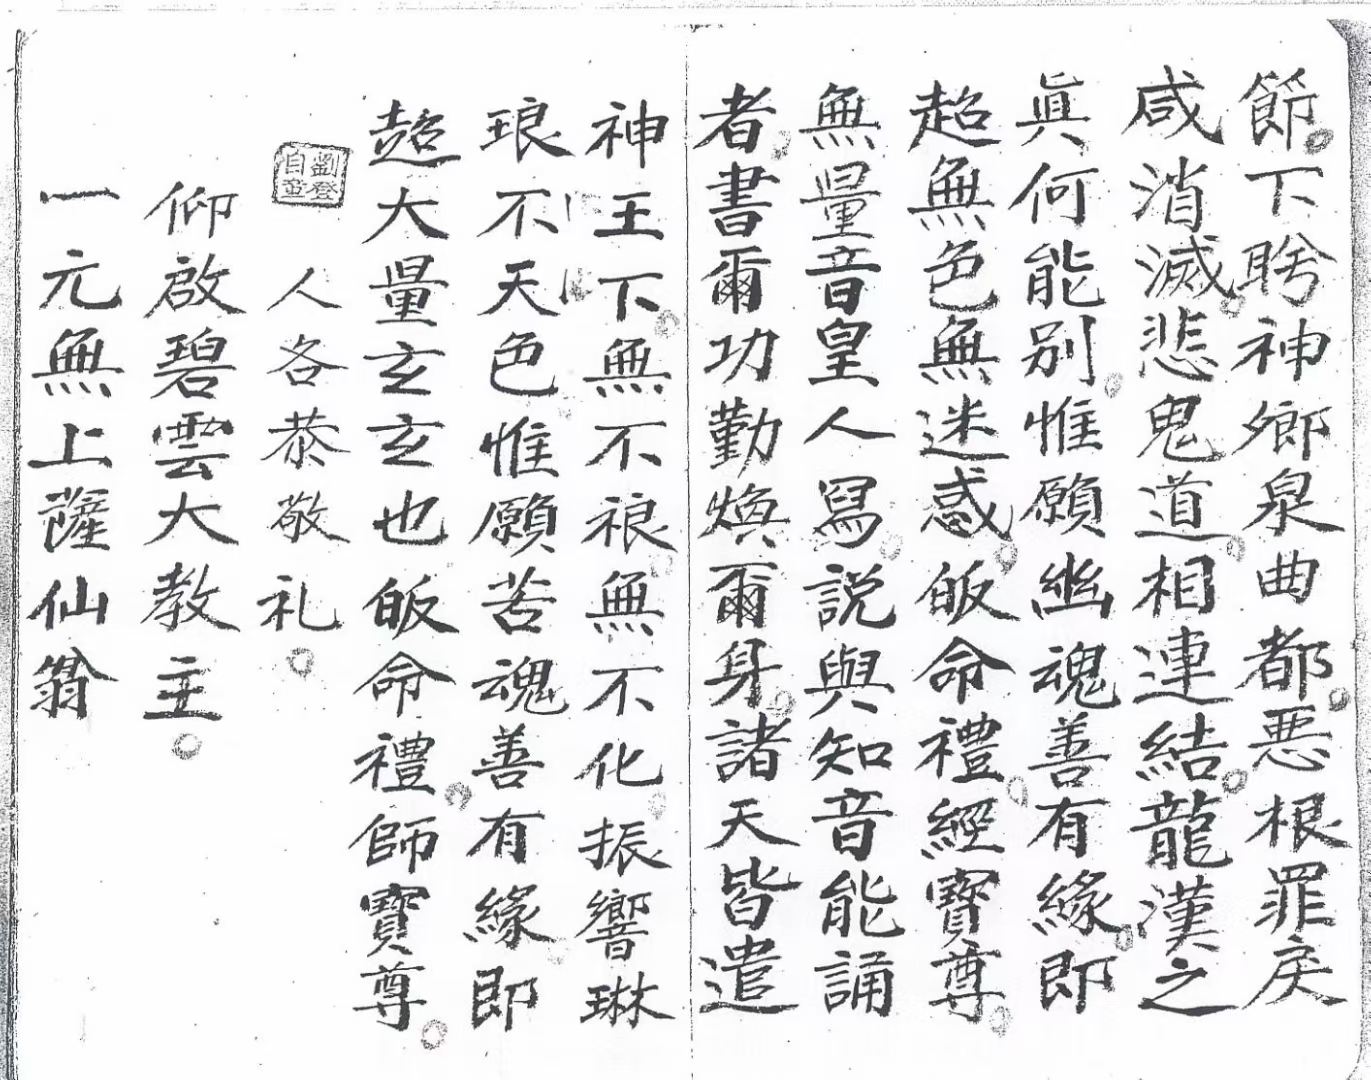 節下聆神鄉泉曲都悪根罪戾
咸消滅悲鬼道相連結龍漢之
眞何能別惟願幽魂善有緣即
超無色無迷惑皈命禮經寶尊
無量音皇人寫説與知音能誦
者書爾功勤煥爾身諸天皆遣
神王下無不祿無不化振響琳
琅不天色惟願苦魂善有緣即
超大量玄玄也皈命禮師寶尊
劉登
自壺
人各恭敬礼
仰啟碧雲大教主
一元無上薩仙翁